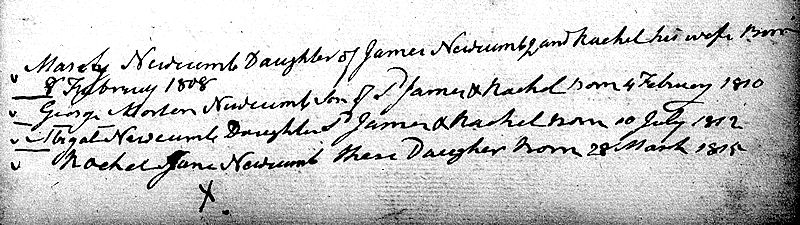 Newcumb Daughter of James Newcumb and Rachel his wife Born
February 1808
George Morton Newcumb Son of Sd James & Rachel Born 4 Februey 1810
Newcumb Daughter Sd James & Rachel Born 10 July 1812
Rachel Jane Newcumb these Daugher Born 28 March 1815
X.